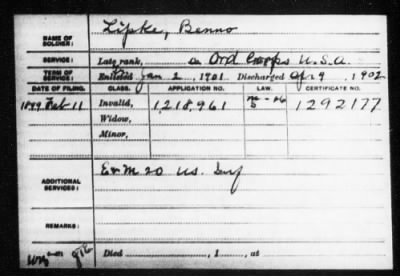 NAME OF SOLDIER: Lipke, Benno
SERVICE: Late rank, Ord Corps U.S.A.
TERM OF SERVICE: Enlisted Jan 2, 1901 Discharged Apr 9, 1902
DATE OF FILING. CLASS. APPLICATION NO. LAW. CERTIFICATE NO.
1899 Feb 11 Invalid, 1,218,961 1292177
Widow,
Minor,
ADDITIONAL SERVICES: E & M 20 U.S. Inf
REMARKS:
Died , 1 , at